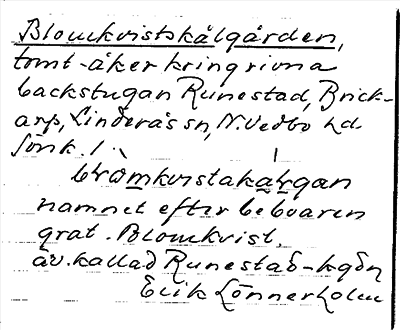 Blomkvistskålgården,
tomt-åker kring rivna
backstugan Runestad, Brick-
arp, Linderås sn, N. Vedbo hd.
Jönk. l.
blomkvistakalgan
namnet efter beboaren
grat. Blomkvist.
äv. kallad Runestad-kgdn
Erik Lönnerholm